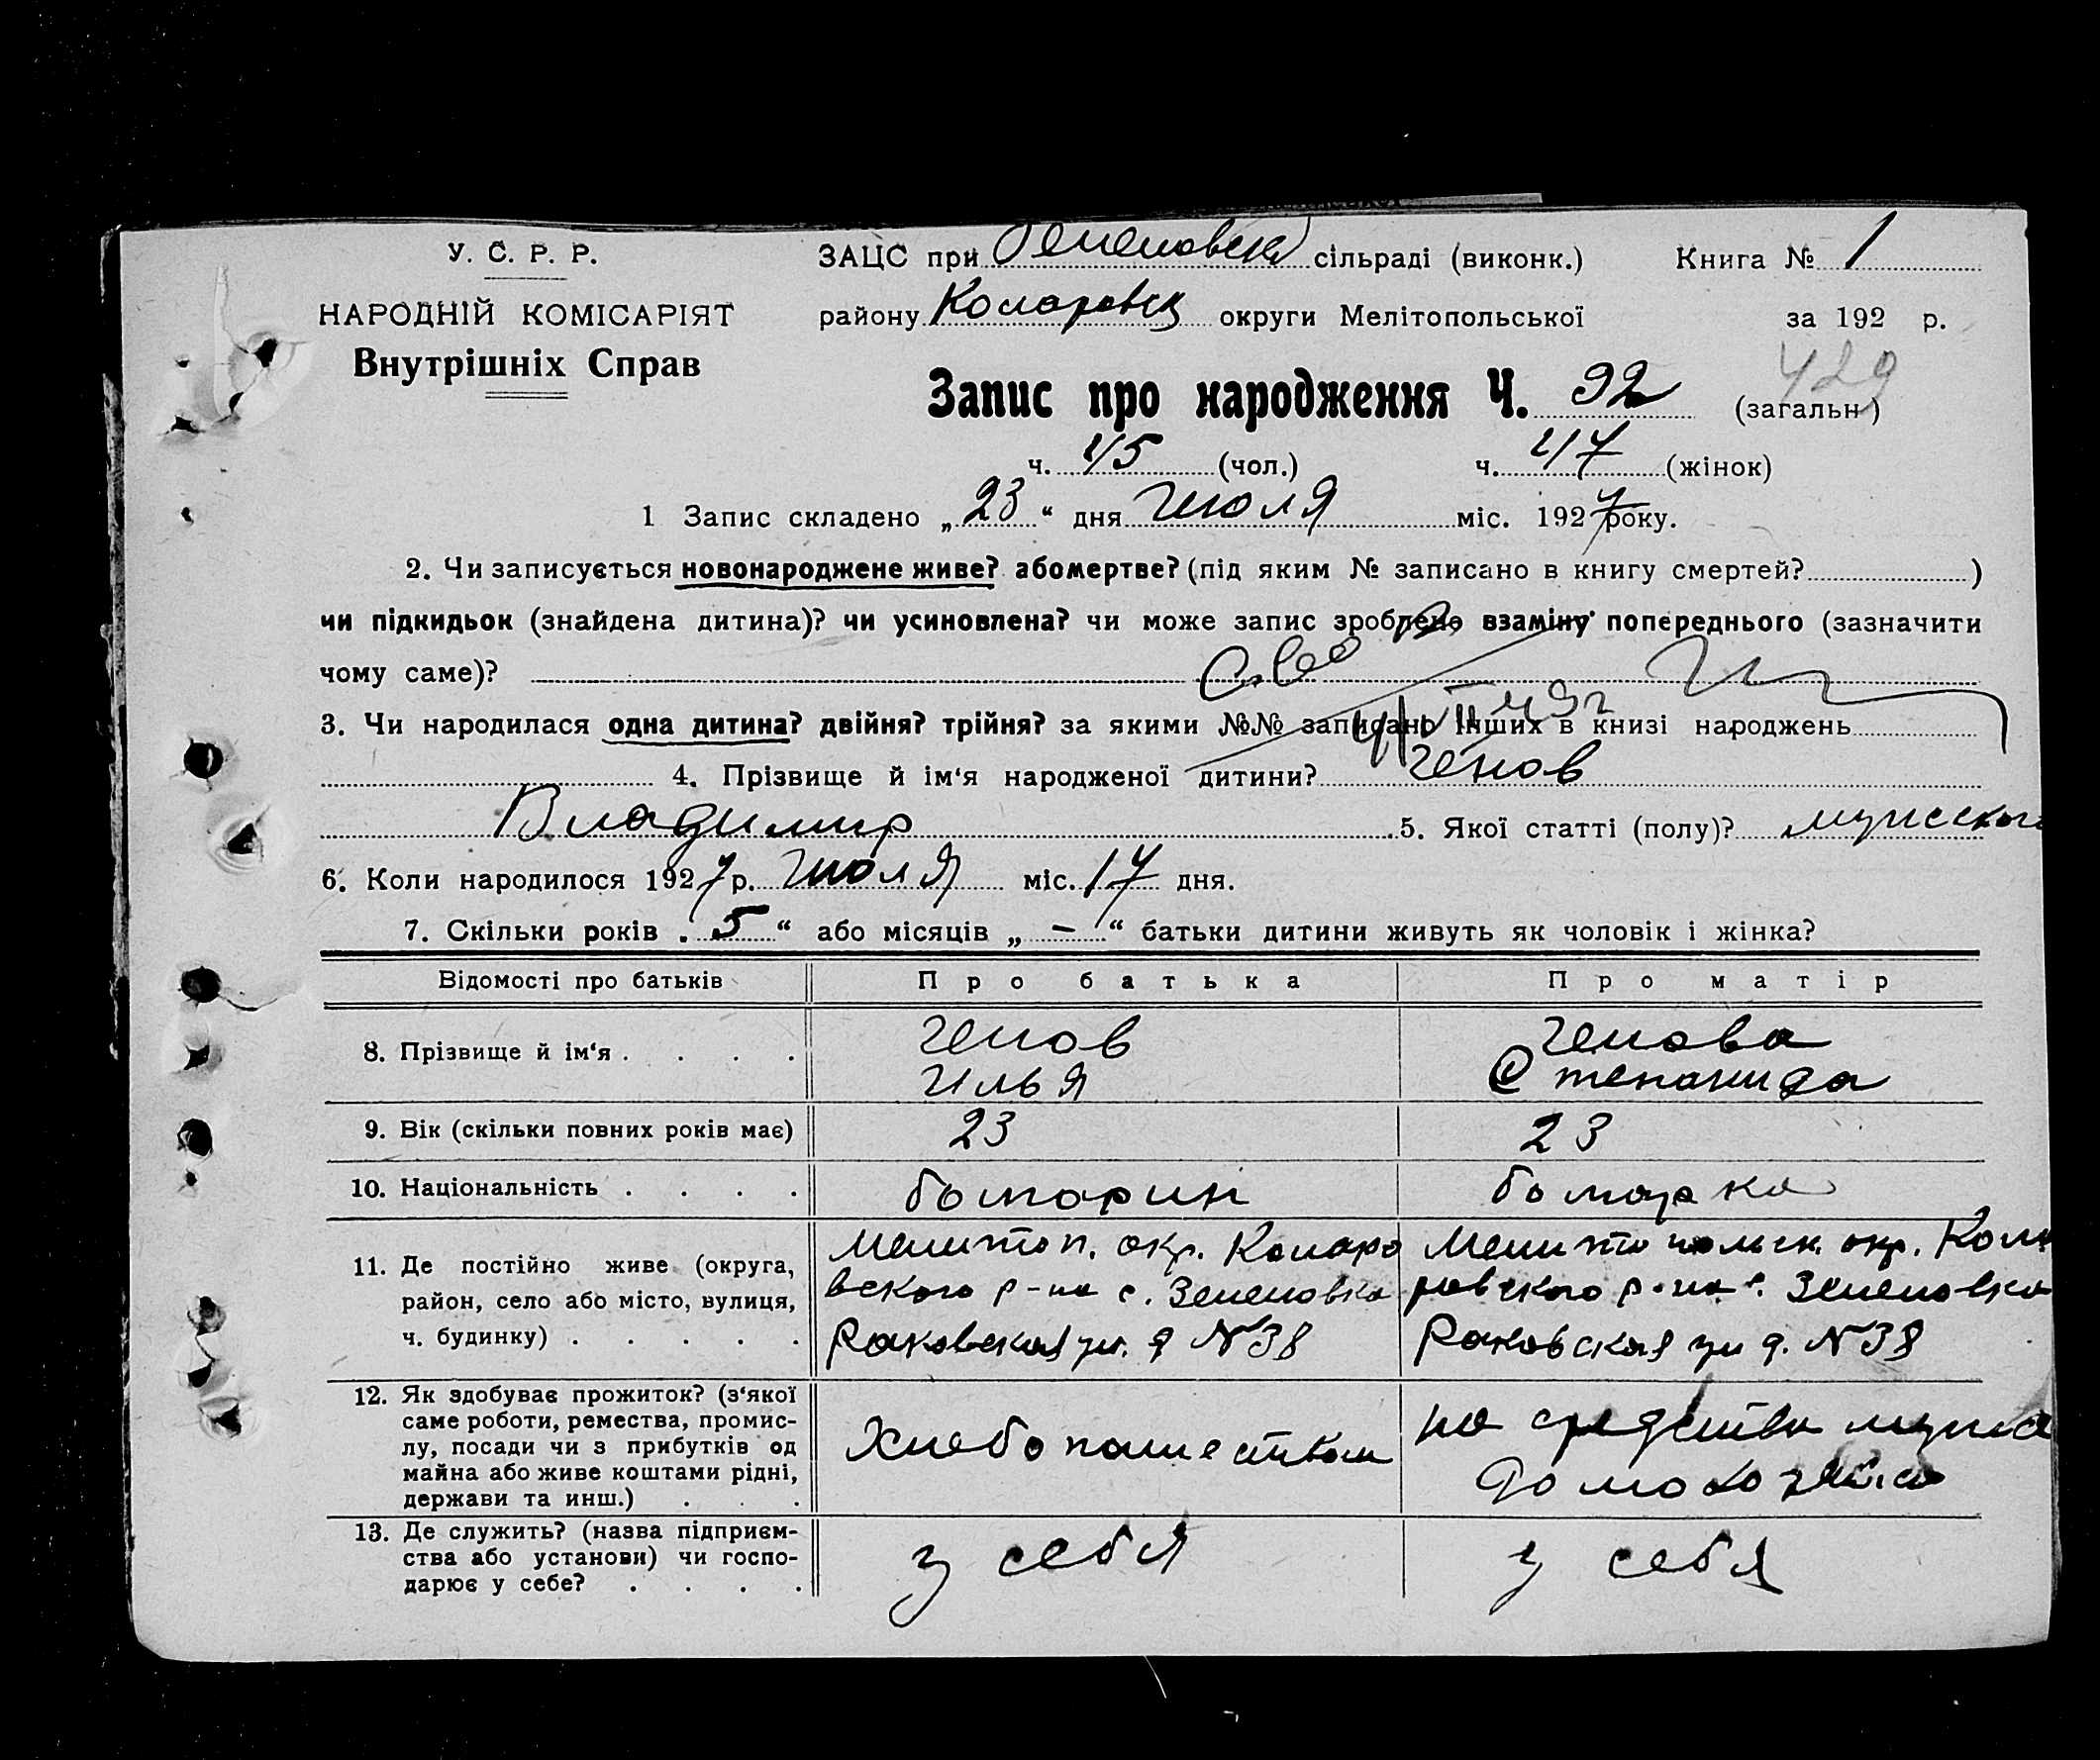 У. С. Р. Р.
НАРОДНІЙ КОМІСАРІЯТ
Внутрішніх Справ
ЗАЦС при сільраді (виконк.) Книга № 1
району Коларовск округи Мелітопольської за 192 р.
429
Запис про народження Ч. 92 (загальн)
ч. 45 (чол.) ч. 47 (жінок)
1 Запис складено „23“ дня Июля міс. 1927 року.
2. Чи записується новонароджене живе? абомертве? (під яким № записано в книгу смертей? )
чи підкидьок (знайдена дитина)? чи усиновлена? чи може запис зроблено взаміну попереднього (зазначити
чому саме)?
3. Чи народилася одна дитина? двійня? трійня? за якими №№ записано інших в книзі народжень
4. Прізвище й ім‘я народженої дитини? Генов
Владимир 5. Якої статті (полу)? мужского
6. Коли народилося 1927 р. Июля міс. 17 дня.
7. Скільки років „5“ або місяців „ – “ батьки дитини живуть як чоловік і жінка?
Відомості про батьків Про батька Про матір
8. Прізвище й ім‘я . . . . Генов Генова
Илья Степанида
9. Вік (скільки повних років має) 23 23
10. Національність . . . . болгарин болгарка
11. Де постійно живе (округа, Мелитоп. окр. Колáро Мелитопольск. окр. Кола
район, село або місто, вулиця, вского р-на с. Зеленовка ровского р-на с. Зеленовка
ч. будинку) . . . . . Раковская ул. д N38 Раковская ул д. N38
12. Як здобуває прожиток? (з‘якої
саме роботи, ремества, промис-
лу, посади чи з прибутків од
майна або живе коштами рідні,
держави та инш.) . . .
Хлебопашеством
на средства мужа
Домохозяйка
13. Де служить? (назва підприєм-
ства або установи) чи госпо-
дарює у себе? . . . .
у себя у себя